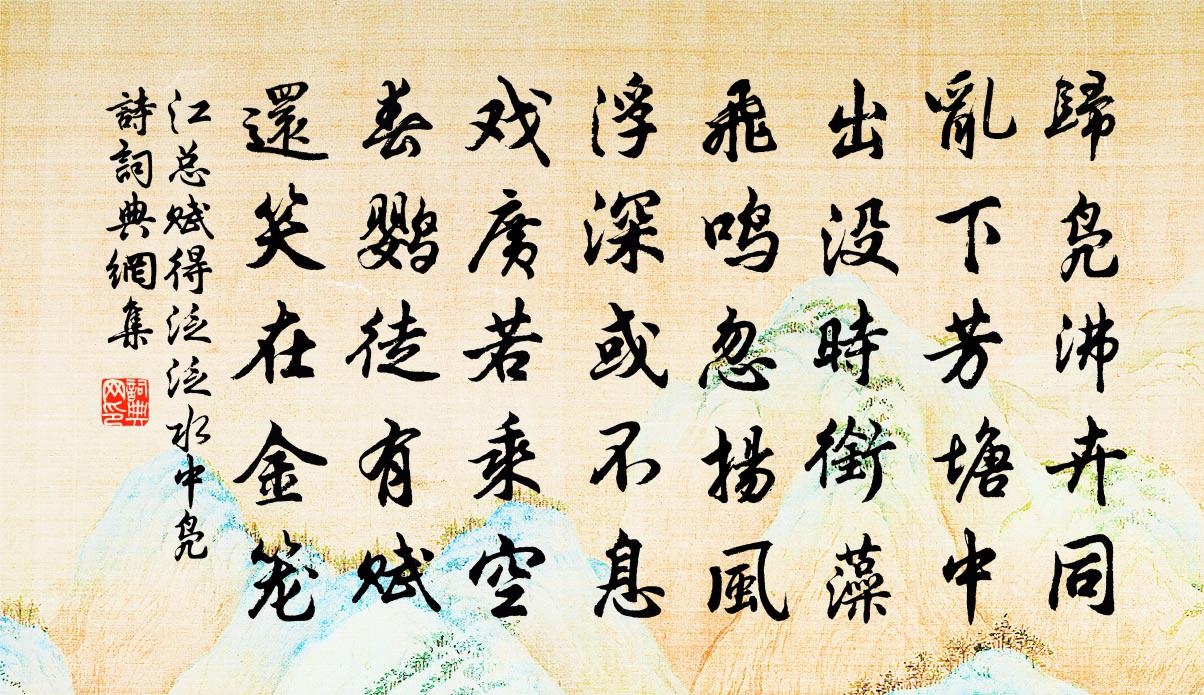 歸凫沸卉同
亂下芳塘中
出没時銜藻
飛鸣忽揚風
浮深或不息
戏廣若乘空
春鹦徒有赋
還笑在金笼
江总赋得泛泛水中凫
詩詞典網集
詞典网印